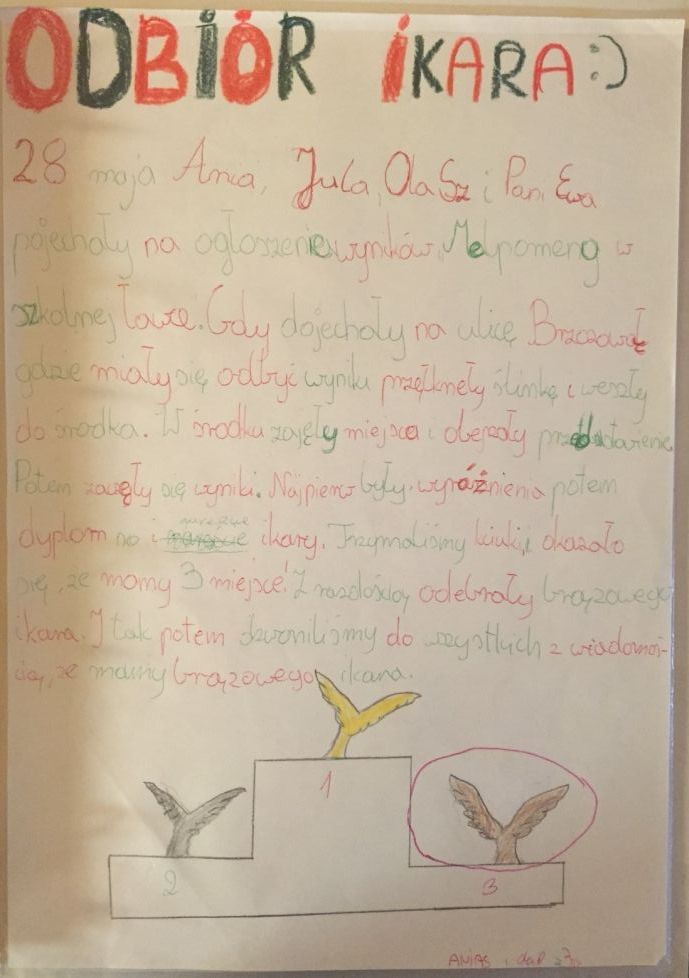 ODBIÓR IKARA :)
28 maja Ania, Jula, Ola Sz i Pani Ewa
pojechały na ogłoszenie wyników „Melpomeny w
szkolnej ławce". Gdy dojechały na ulicę Brzozową
gdzie miały się odbyć wyniki przełknęły ślinkę i weszły
do środka. W środku zajęły miejsca i obejrzały przedstawienie
Potem zaczęły się wyniki. Najpierw były wyróżnienia potem
dyplom no i ikary. Trzymaliśmy kciuki, i okazało
się, że mamy 3 miejsce! Z radością odebrały brązowego
ikara. I tak potem dzwoniliśmy do wszystkich z wiadomoś-
cią, że mamy brązowego ikara.
1
2
3